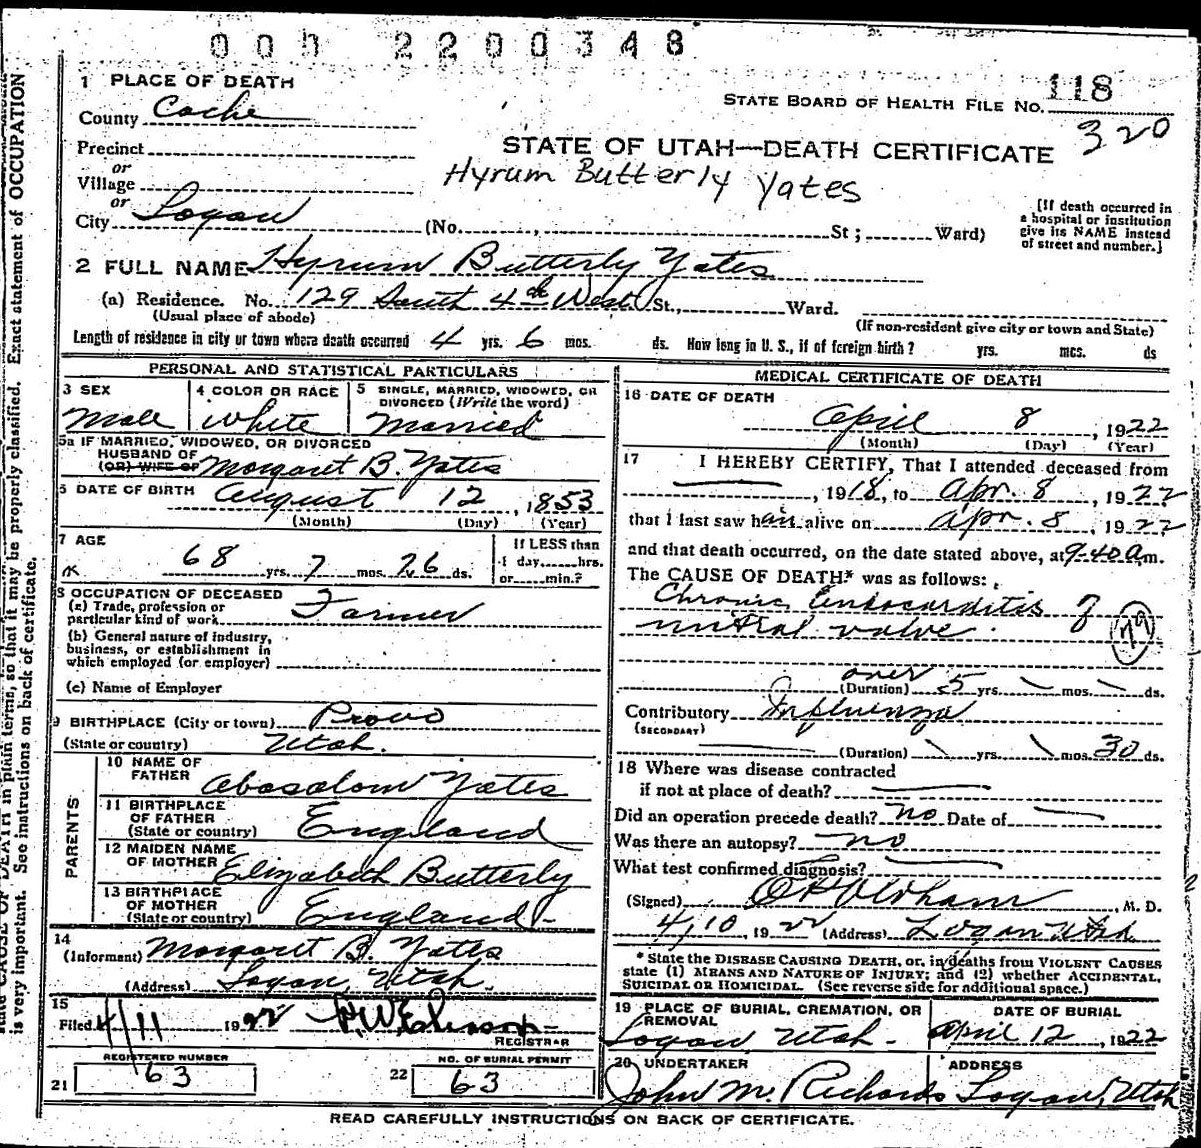 000 2200348
1 PLACE OF DEATH
County Cache
STATE BOARD OF HEALTH FILE NO. 118
320
Precinct
or
Village
or
City Logan (No. , St; Ward)
STATE OF UTAH—DEATH CERTIFICATE
Hyrum Butterly Yates
[If death occurred in
a hospital or institution
give its NAME instead
of street and number.]
2 FULL NAME Hyrum Butterly Yates
(a) Residence. No. 129 South 4th West St., Ward.
(Usual place of abode) (If non-resident give city or town and State)
Length of residence in city or town where death occurred 4 yrs. 6 mos. ds. How long in U. S., if of foreign birth? yrs. mos. ds
PERSONAL AND STATISTICAL PARTICULARS
3 SEX 4 COLOR OR RACE 5 SINGLE, MARRIED, WIDOWED, OR
DIVORCED (Write the word)
Male White Married
5a IF MARRIED, WIDOWED, OR DIVORCED
HUSBAND OF
(OR) WIFE OF Margaret B. Yates
6 DATE OF BIRTH August 12, 1853
(Month) (Day) (Year)
7 AGE
68 yrs. 7 mos. 26 ds.
If LESS than
1 day, hrs.
or min.?
8 OCCUPATION OF DECEASED
(a) Trade, profession or
particular kind of work Farmer
(b) General nature of industry,
business, or establishment in
which employed (or employer)
(c) Name of Employer
9 BIRTHPLACE (City or town) Provo
(State or country) Utah.
PARENTS
10 NAME OF
FATHER Abosalom Yates
11 BIRTHPLACE
OF FATHER
(State or country) England
12 MAIDEN NAME
OF MOTHER Elizabeth Butterly
13 BIRTHPLACE
OF MOTHER
(State or country) England
14
(Informant) Margaret B. Yates
(Address) Logan, Utah.
15
Filed 4/11 1922
REGISTRAR
REGISTERED NUMBER
21 63
NO. OF BURIAL PERMIT
22 63
MEDICAL CERTIFICATE OF DEATH
16 DATE OF DEATH
April 8, 1922
(Month) (Day) (Year)
17 I HEREBY CERTIFY, That I attended deceased from
, 1918, to Apr. 8, 1922
that I last saw him alive on Apr. 8, 1922
and that death occurred, on the date stated above, at 9-40 a m.
The CAUSE OF DEATH* was as follows:
Chronic Endocarditis of
mitral valve.
79
over
(Duration) 5 yrs. mos. ds.
Contributory Influenza
(SECONDARY)
(Duration) yrs. mos. 30 ds.
18 Where was disease contracted
if not at place of death?
Did an operation precede death? no Date of
Was there an autopsy? no
What test confirmed diagnosis?
(Signed) Oldham, M. D.
4/10, 1922 (Address) Logan Utah
* State the DISEASE CAUSING DEATH, or, in deaths from VIOLENT CAUSES
state (1) MEANS AND NATURE OF INJURY; and (2) whether ACCIDENTAL,
SUICIDAL OR HOMICIDAL. (See reverse side for additional space.)
19 PLACE OF BURIAL, CREMATION, OR
REMOVAL
Logan Utah.
DATE OF BURIAL
April 12, 1922
20 UNDERTAKER
John M. Richards
ADDRESS
Logan, Utah
READ CAREFULLY INSTRUCTIONS ON BACK OF CERTIFICATE.
state CAUSE OF DEATH in plain terms, so that it may be properly classified. Exact statement of OCCUPATION
is very important. See instructions on back of certificate.